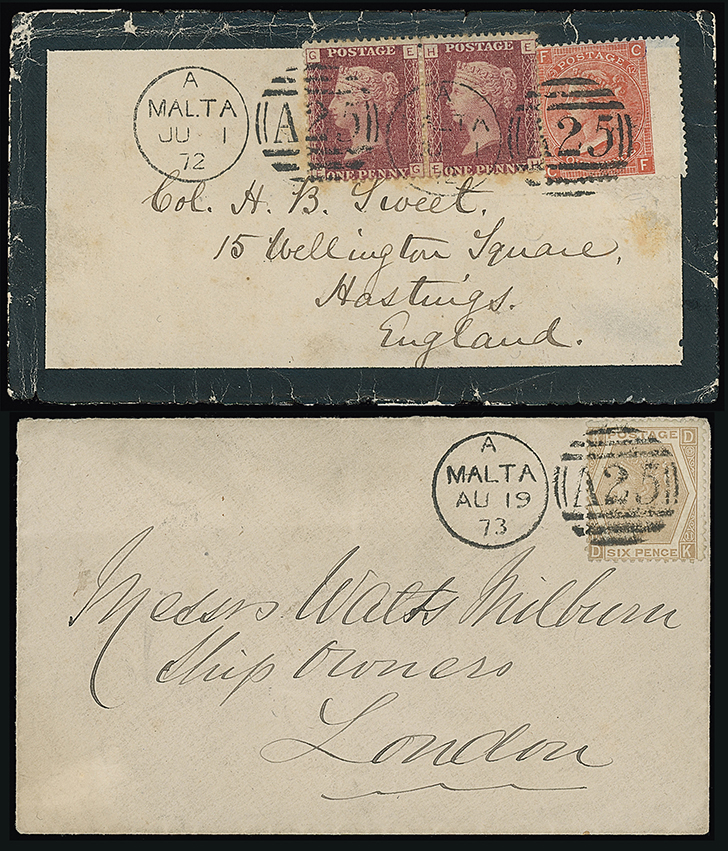 G POSTAGE E
H POSTAGE E
F POSTAGE C
A
MALTA
JU 1
72
A25
A
ALTA
A25
ONE PENNY G
E ONE PENNY H
C F
Col. H. B. Sweet.
15 Wellington Square,
Hastings.
England.
A
MALTA
AU 19
73
A25
POSTAGE D
D SIX PENCE K
Messrs Watts Milburn
Ship Owners
London